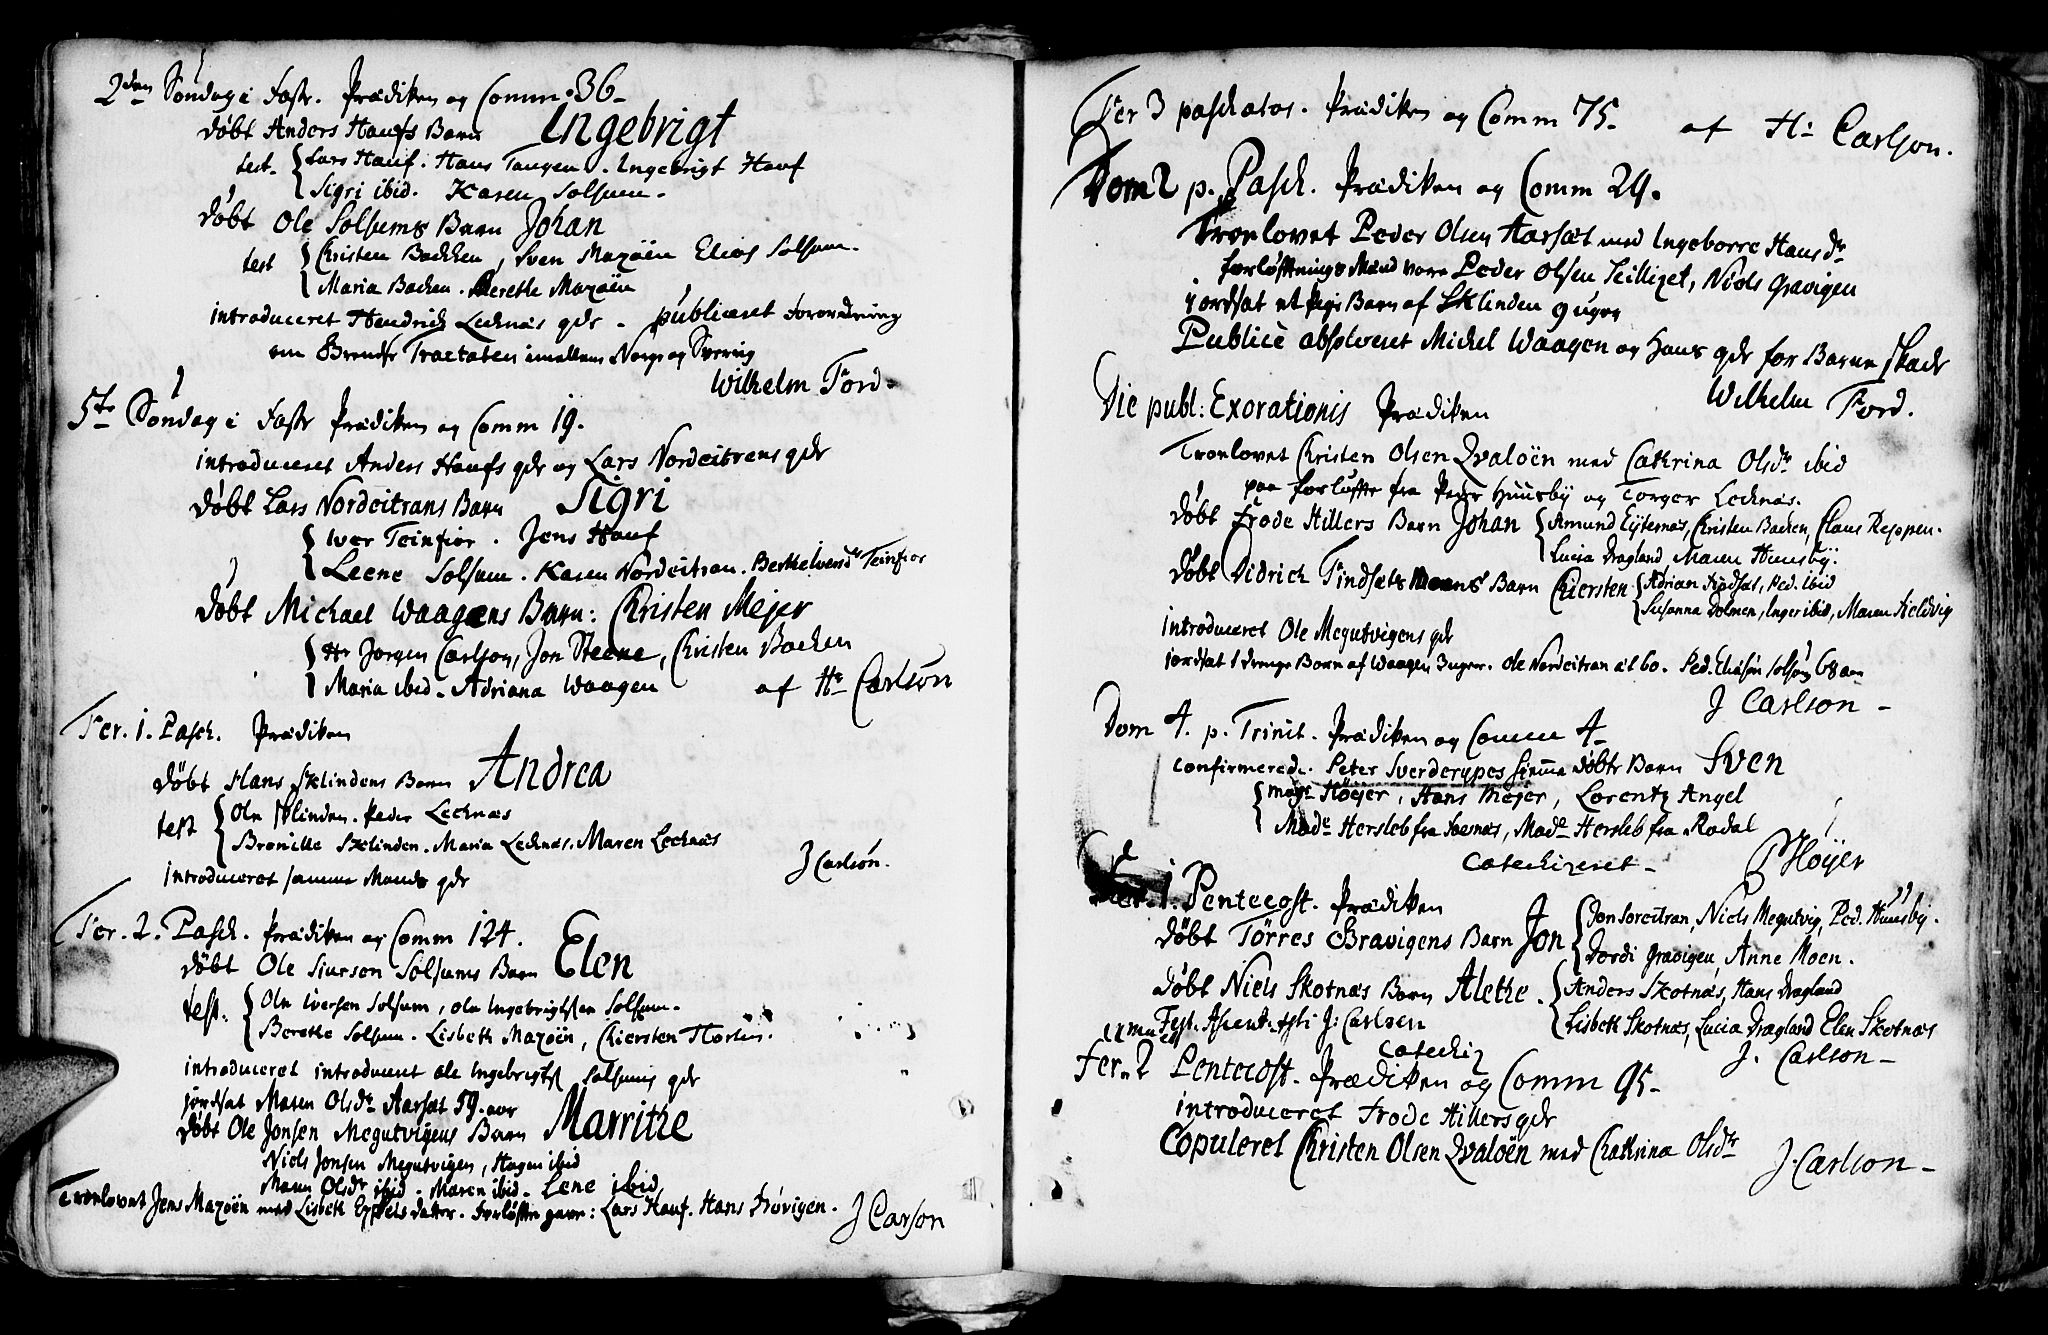 2den Søndag i Faste. Prædiken og Comm. 36-
Døbt Anders Haufs Barn Ingebrigt
test. Lars Hauf. Hans Tangen. Ingebrigt Hauf
Sigri ibid. Karen Solsum.
Døbt Ole Solsums Barn Johan
test Christen Backen, Sven Mazøen Elias Solsum.
Maria Backen. Berethe Mazøen
introduceret Hendrich Lecknæs qde. publiceret Forordning
om Grendse Tractaten imellem Norge og Sverrig
Wilhelm Ford.
5te Søndag i Faste Prædiken og Comm 19.
introduceret Anders Haufs qde og Lars Nordeitrans qde
Døbt Lars Nordeitrans Barn Sigri
Iver Teinfior. Jens Hauf
Leene Solsum. Karen Nordeitran. Berthel Teinfior
Døbt Michael Waagens Barn: Christen Mejer
Hr Jorgen Carlson, Jon Steene, Christen Backen
Maria ibid. Adriana Waagen af Hr Carlson
Fer. 1. Pasch. Prædiken
Døbt Hans Sklindens Barn Andrea
test Ole Sklinden. Peder Lecknæs
Bronille Sklinden. Maria Lecknæs. Maren Lecknæs
introduceret samme Mands qde J Carlson.
Fer. 2. Pasch. Prædiken og Comm 124.
Døbt Ole Siursen Solsums Barn Elen
test. Ole Iversen Solsum, Ole Ingebrigtsen Solsum.
Berethe Solsum. Lisbeth Mazøen, Chiersten Horsn.
introduceret introduceret Ole Ingebrigts Solsums qde
jordsat Maren Olsdr Aarsæt 59. aar
Døbt Ole Jonsen Megutvigens Barn Marrithe
Niels Jonsen Megutvigen, Hagen ibid
Maren Olsdr ibid. Maren ibid. Lene ibid
Troelovet Jens Mazøen med Lisbeth Eppels datter. Forløfte gave: Lars Hauf. Hans Frøvigen. J Carson
Fer 3 paschatos. Prædiken og Comm 75. af Hr Carlson.
Dom 2 p. Pasch. Prædiken og Comm 29.
Troelovet Peder Olsen Aarsæt med Ingeborre Hansdr
forløftnings Mænd vare Peder Olsen Teilliget, Niels Gravigen
jordsat et Pige Barn af Sklinden 9 uger
Publicè absolveret Michel Waagen og Hans qde for Barne skade
Wilhelm Ford.
Die publ: Exorationis Prædiken
Troelovet Christen Olsen Qvaløen med Cathrina Olsdr ibid
paa forløfte fra Peder Huusby og Torger Lecknæs.
Døbt Frode Hillers Barn Johan Amund Eyternæs, Christen Backen, Claus Reppen.
Lucia Dragland Maren Huusby.
Døbt Didrich Tindsæts Barn Chiersten Adrian Tindsæt, Ped. ibid
Susanna Dolmen, Inger ibid, Maren Heldvig
introduceret Ole Megutvigens qde
jordsat 1 drenge Barn af Waagen 3 uger. Ole Nordeitran æt 60. Ped. Eliasen Solsum 68 aar
J Carlson -
Dom 4. p. Trinit. Prædiken og Comm 4-
confirmerede. Peter Sverdrupes hiemme døbte Barn Sven
Msr Høyer, Hans Mejer, Lorentz Angel
Made Hersleb fra Foesnæs, Made Hersleb fra Rødal
Catechizeret - P Høyer
Fer. 1. Pentecost. Prædiken
Døbt Törres Gravigens Barn Jon Jon Soreitran, Niels Megutvig, Ped. Huusby.
Dordi Gravigen, Anne Moen.
Døbt Niels Skotnæs Barn Alethe. Anders Skotnæs, Hans Dragland
Lisbeth Skotnæs, Lucia Dragland Elen Skotnæs
Fest. J: Carlsen
Catechiz J. Carlson -
Fer. 2 Pentecost. Prædiken og Comm 95-
introduceret Frode Hillers qde
Copuleret Christen Olsen Qvaløen med Chathrina Olsdtr
J. Carlson -